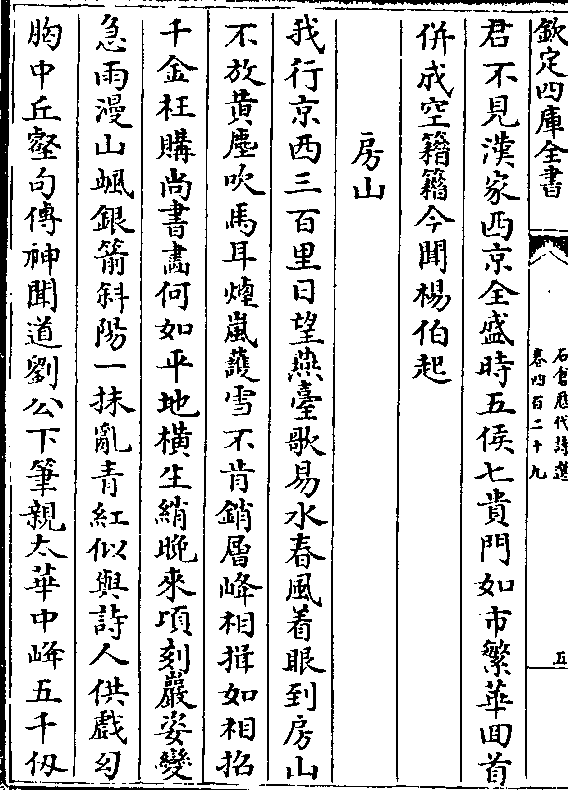 欽定四庫全書
石倉歷代詩選
卷四百二十九
五
君不見漢家西京全盛時五侯七貴門如市繁華回首
併成空籍籍今聞楊伯起
房山
我行京西三百里日望燕臺歌易水春風着眼到房山
不放黄塵吹馬耳煖嵐護雪不肯銷層峰相揖如相招
千金枉購尚書畵何如平地橫生綃晚來項刻巖姿變
急雨漫山颯銀箭斜陽一抹亂青紅似與詩人供戲幻
胸中丘壑句傳神聞道劉公下筆親太華中峰五千仭